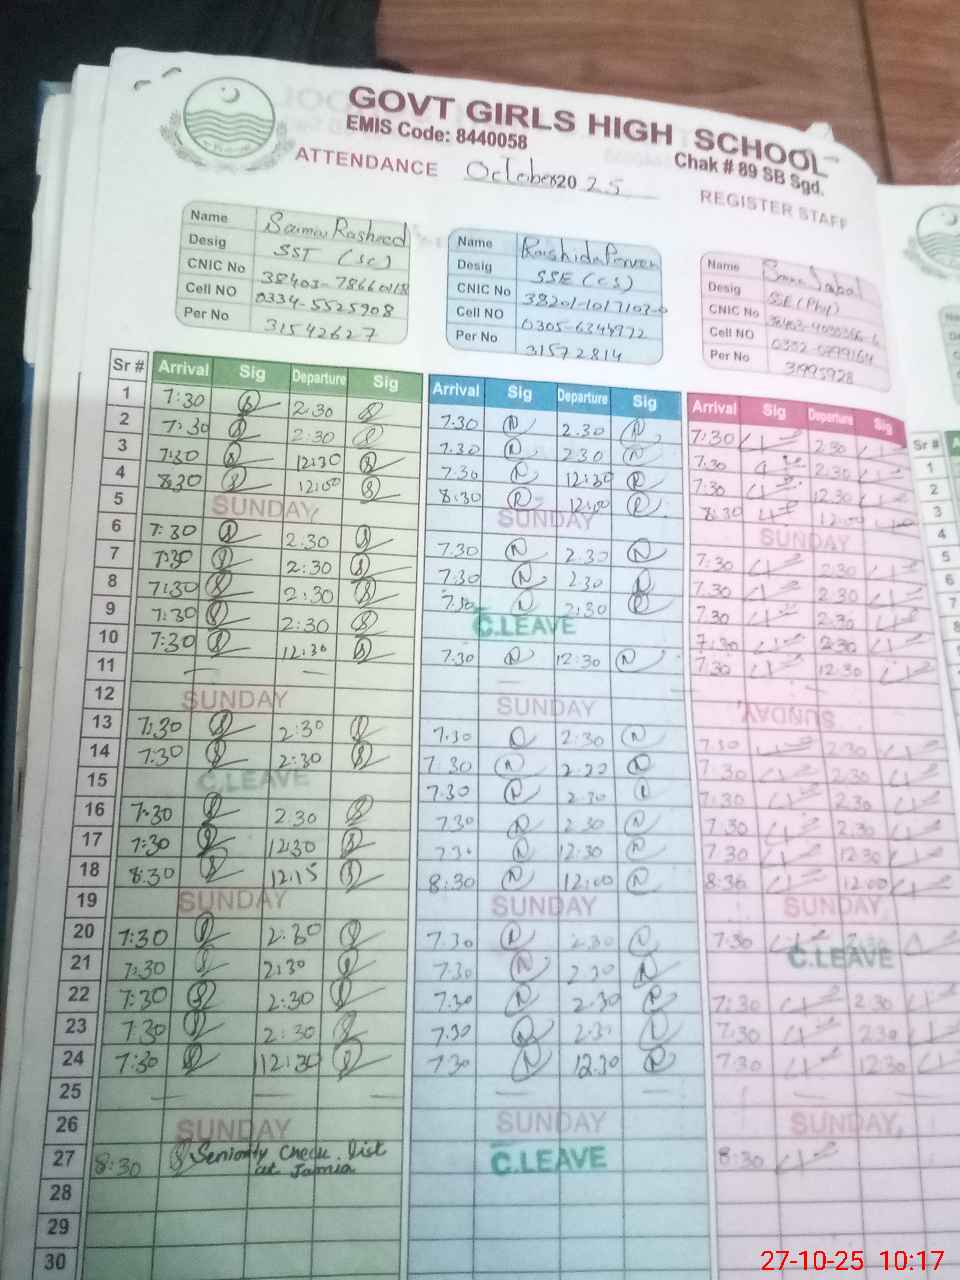 GOVT GIRLS HIGH SCHOOL
EMIS Code: 8440058
Chak # 89 SB Sgd.
ATTENDANCE October 2025
REGISTER STAFF
Name Saima Rasheed
Desig SST (SC)
CNIC No
Cell NO 0334-5525908
Per No 31542627
Name Rashida Parven
Desig SSE (CS)
CNIC No 38201-1017103-0
Cell NO
Per No 31572814
Name
Desig SSE (Phy)
CNIC No
Cell NO
Per No 31995928
Sr # Arrival Sig Departure Sig Arrival Sig Departure Sig Arrival Sig Departure Sig Sr #
1 7:30 2:30 7:30 2:30 7:30 2:30
2 7:30 2:30 7:30 2:30 7:30 2:30
3 7:30 12:30 7:30 12:30 7:30 12:30
4 8:30 12:00 8:30 12:00 8:30 12:00
5 SUNDAY SUNDAY SUNDAY
6 7:30 2:30 7:30 2:30 7:30 2:30
7 7:30 2:30 7:30 2:30 7:30 2:30
8 7:30 2:30 7:30 2:30 7:30 2:30
9 7:30 2:30 C.LEAVE 7:30 2:30
10 7:30 12:30 7:30 12:30 7:30 12:30
11 — — — —
12 SUNDAY SUNDAY SUNDAY
13 7:30 2:30 7:30 2:30 7:30 2:30
14 7:30 2:30 7:30 2:30 7:30 2:30
15 C.LEAVE 7:30 2:30 7:30 2:30
16 7:30 2:30 7:30 2:30 7:30 2:30
17 7:30 12:30 12:30 7:30 12:30
18 8:30 12:15 8:30 12:00 8:30 12:00
19 SUNDAY SUNDAY SUNDAY
20 7:30 2:30 7:30 2:30 7:30
21 7:30 2:30 7:30 2:30 C.LEAVE
22 7:30 2:30 7:30 2:30 7:30 2:30
23 7:30 2:30 7:30 2:30 7:30 2:30
24 7:30 12:30 7:30 12:30 7:30 12:30
25 — — — — —
26 SUNDAY SUNDAY SUNDAY
27 8:30 Seniority Check list C.LEAVE 8:30
at Jamia
28
29
30
27-10-25 10:17